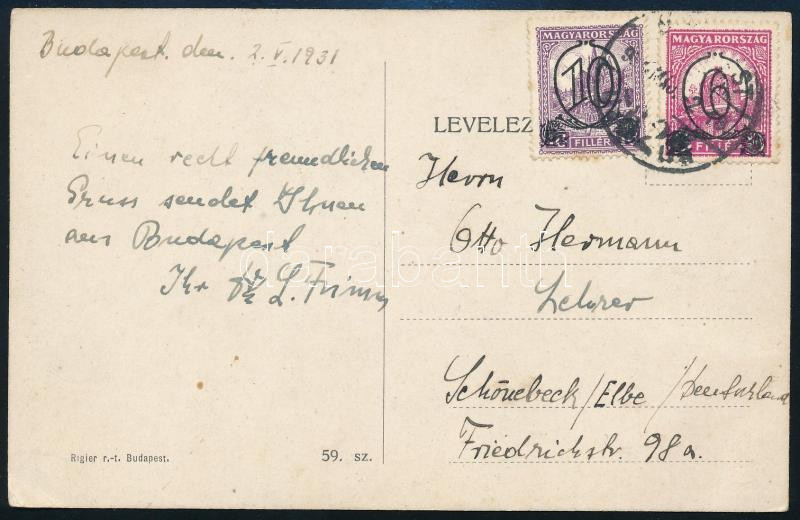 Budapest. den. 2. V. 1931
MAGYARORSZÁG
10
FILLÉR
MAGYARORSZÁG
6
FILLÉR
LEVELEZ
Einen recht freundlichen
Gruss sendet Ihnen
aus Budapest
Ihr L.
Herrn
Otto Hermann
Lehrer
Schönebeck/Elbe/Deutschland
Friedrichstr. 98a.
Rigler r.-t. Budapest.
59. sz.
darabanth